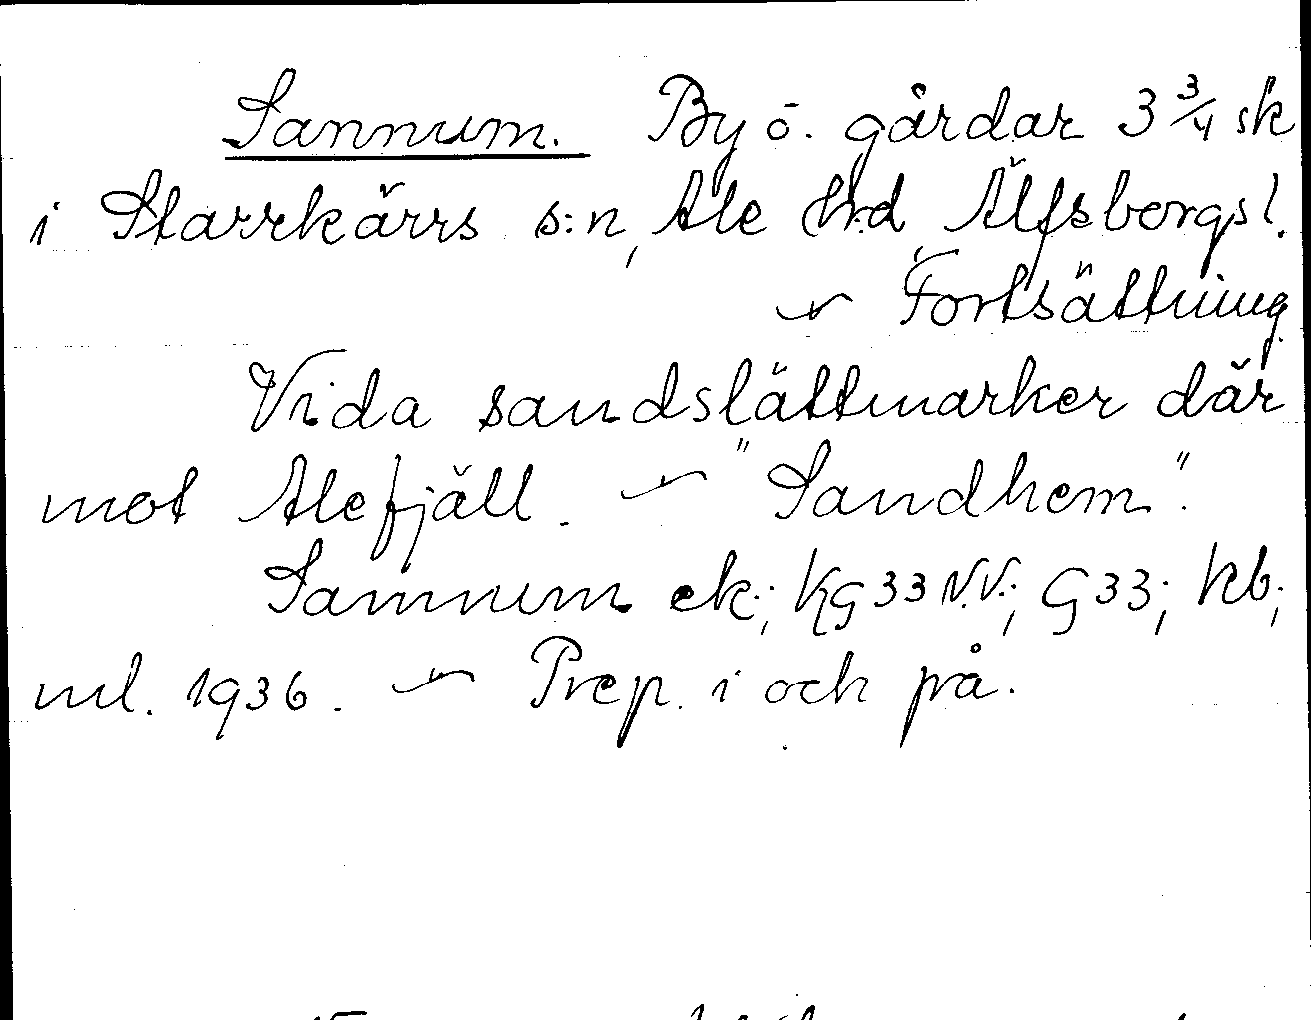 Sannum. By ö. gårdar 3 3/4 sk
i Starrkärrs s:n, Ale hrd, Älfsborgs l.
~ Fortsättning
Vida sandslättmarker där
mot Alefjäll. ~ "Sandhem".
Sannum ek.; KG 33 N.V.; G 33; kb.;
ml. 1936. ~ Prep. i och på.